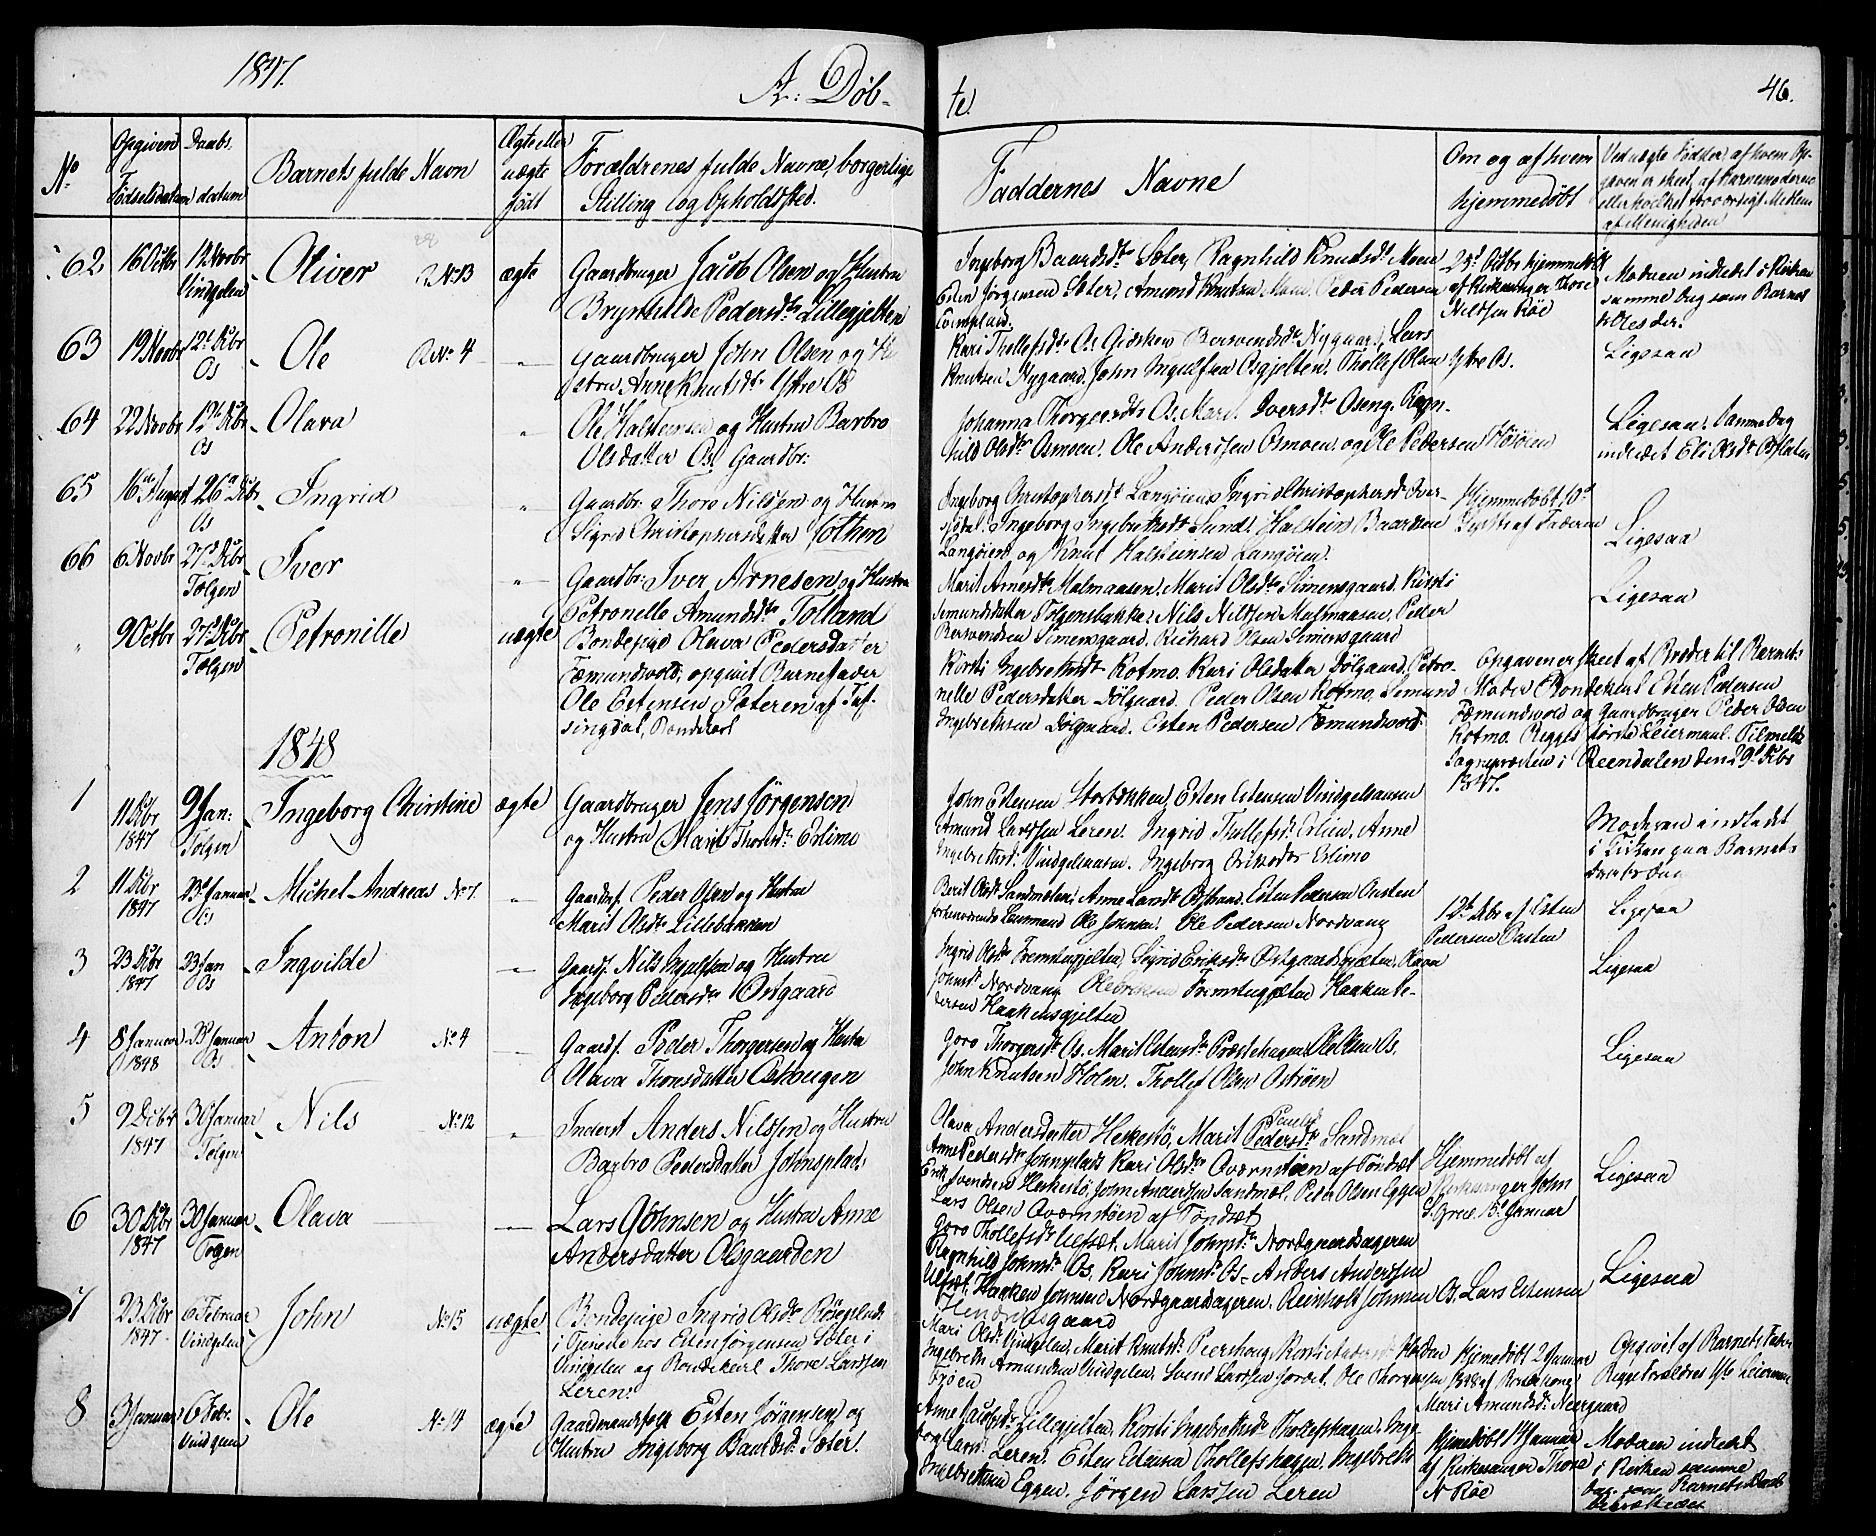 1847.
A: Døb-
te
46.
No
Opgiven Fødselsdatum
Daabs datum
Barnets fulde Navn
Ægte eller uægte født
Forældrenes fulde Navne, borgerlige
Stilling og Opholdssted.
Faddernes Navne
Om og af hvem
hjemmedøbt
af Menigheden
62 16 Octbr 12 Novbr Vindgelen Oliver No 13 ægte
Gaardbruger Jacob Olsen og Hustru
Brynhilde Pedersdtr Lillegjelten
Ingeborg Baardsdtr Sæter, Ragnhild Knudsdtr Moen
Esten Jørgensen Sæter, Amund Knutsen Moen, Peder Pedersen
23d Octbr hjemmedøbt
af Kirkesanger Thore
Nilssen Røe
Moderen indledet i Kirken
samme Dag som Barnet
63 19 Novbr 12 Dcbr Os Ole No 4
Gaardbruger John Olsen og Hu-
stru Anne Knutsdtr Ystre Os
Kari Thollefsdtr Os. Gidsken Bersvendsdtr Nygaard, Lars
Knutsen Nygaard. John Ingulfsen Osgjelten. Thollef Olsen Ystre Os.
Ligesaa
64 22 Novbr 12 Dcbr Os Olava
Ole Halsteinsen og Hustru Barbro
Olsdatter Os. Gaardbr:
Johanna Thorgersdtr Os. Marit Iversdtr Oseng. Ragn-
hild Olsdtr Osmoen. Ole Andersen Osmoen og Ole Pedersen
Ligesaa. Samme Dag
indledet Eli Olsdtr
65 16 August 26 Dcbr Os Ingrid
Gaardbr: Thore Nilsen og Hustru
Sigrid Christophersdatter
Ingeborg Christophersdtr Langøien, Ingrid Christophersdtr Over-
Ingeborg Ingebrethsdtr Sund. Halstein Baardsen
Langøien og Knut Halsteinsen Langøien.
Hjemmedøbt
Ligesaa
66 6 Novbr 27 Dcbr Tolgen Iver
Gaardbr: Iver Arnesen og Hustru
Petronelle Amundsdtr Tolland
Marit Arnesdtr Malmaasen. Marit Olsdtr Simensgaard. Kirsti
Simundsdatter Tolgensbakke. Nils Nilssen Malmaasen. Peder
Bersvendsen Simensgaard. Richard Olsen Simensgaard
Ligesaa
9 Octbr 27 Dcbr Tolgen Petronille uægte
Bondepige Olava Pedersdatter
Fæmundwold, opgivet Barnefader
Ole Estensen Sæteren af Tuf-
singdal, Bondekarl
Kirsti Ingebrethsdtr Kotmo. Kari Olsdatter Dølgaard, Petro-
nelle Pedersdatter Dølgaard. Peder Olsen Kotmo. Simund
Ingebrethsen Dølgaard. Esten Pedersen Fæmundwold.
Opgaven er skeet af Broder til Barnets
Moder Bondekarl Esten Pedersen
Fæmundwold og Gaardbruger Peder Olsen
Kotmo. Begges første Leiermaal. Tilmeldt
Sognepræsten i Reendalen den 29d Dcbr
1847.
1848
1 11 Dcbr 1847 9 Jan: Tolgen Ingeborg Christine ægte
Gaardbruger Jens Jørgensen
og Hustru Marit Thoresdtr Erlimo
John Estensen Storbækken, Esten Estensen Vindgelsaasen
Amund Larssen Leren. Ingrid Thollefsdtr Erlien. Anne
Ingebrethsdtr Vindgelsaasen. Ingeborg Eriksdtr Erlimo
Moderen indledet
i Kirken paa Barnets
Daabsdag
2 11 Dcbr 1847 23 Januar Os Michel Andreas No 7
Gaardsf. Peder Olsen og Hustru
Marit Olsdtr Lillebækken
Berit Olsdtr Sandmælen, Anne Larsdtr Osstrand. Esten Pedersen Ousten
forhenværende Lensmand Ole Johnsen. Ole Pedersen Nordvang
12te Dcbr af Esten
Pedersen Ousten
Ligesaa
3 23 Dcbr 1847 23 Jan Os Ingvilde
Gaardf. Nils Ingulfsen og Hustru
Ingeborg Pedersdtr Østgaard
Ingrid Olsdtr Fremstegjelten, Sigrid Eriksdtr Østgaardsgjelten. Olava
Johnsdtr Nordvang Ole Eriksen Fremstegjelten Haaken Pe-
dersen Haakensgjelten
Ligesaa
4 8 Januar 1848 23 Januar Os Anton No 4
Gaardf. Peder Thorgersen og Hustru
Olava Thoresdatter Oshaugen
Goro Thorgersdtr Os. Marit Estensdtr Præstehagen. Ole Olsen Os.
John Knutsen Holm. Thollef Olsen Osvøen
Ligesaa
5 9 Dcbr 1847 30 Januar Tolgen Nils No 12
Inderst Anders Nilssen og Hustru
Barbro Pedersdatter Johnsplads
Olava Andersdatter Heksestø, Marit Paulsd Pedersdtr Sandmæl
Anne Pedersdtr Johnsplads Kari Olsdtr Qværnstøen af Tøndsæt
Erik Svendsen Heksestø, John Andersen Sandmæl. Peder Olsen Eggen
Lars Olsen Qværnstøen af Tøndsæt
Hjemmedøbt af
Kirkesanger John
15d Januar
Ligesaa
6 30 Dcbr 1847 30 Januar Tolgen Olava
Lars Johnsen og Hustru Anne
Andersdatter Olsgaarden
Goro Thollefsdtr Ulfsæt. Marit Johnsdtr Nordgaardsageren
Ragnhild Johnsdtr Os. Kari Johnsdtr Os. Anders Andersen
Ulfsæt. Haaken Johnsen Nordgaardsageren. Reinholt Johnsen Os. Lars Estensen
Hendriksgaard
Ligesaa
7 23 Dcbr 1847 6 Februar Vindgelen John No 15 uægte
Bondepige Ingrid Olsdtr Røseplads
i Tjeneste hos Esten Jørgensen Sæter i
Vindgelen og Bondekarl Thore Larssen
Leren.
Mari Olsdtr Vindgelen, Marit Knutsdtr Peershoug, Kirsti
Ingebreth Amundsen Vindgelen, Svend Larssen Joræt. Ole Thorgersen
Moen
Hjemmedøbt 2 Januar
1848 af
Mari Amundsdtr Neergaard
Opgivet af Barnets Fader
Begge Forældres 1ste Leiermaal
8 3 Januar 6 Febr. Vindgelen Ole No 14 ægte
Gaardmandsfolk Esten Jørgensen og
Hustru Ingeborg Baardsdtr Sæter.
Anne Jacobsdtr Lillegjelten, Kirsti Ingebrethsdtr Thollefshagen. Inge-
borg Larsdtr Leren. Esten Estensen Thollefshagen, Ingebreth
Ingebrethsen Eggen. Jørgen Larssen Leren
Hjemmedøbt 14 Januar
af Kirkesanger Thore
N Røe
Moderen indledet
i Kirken samme
Dag som Barnets Daab